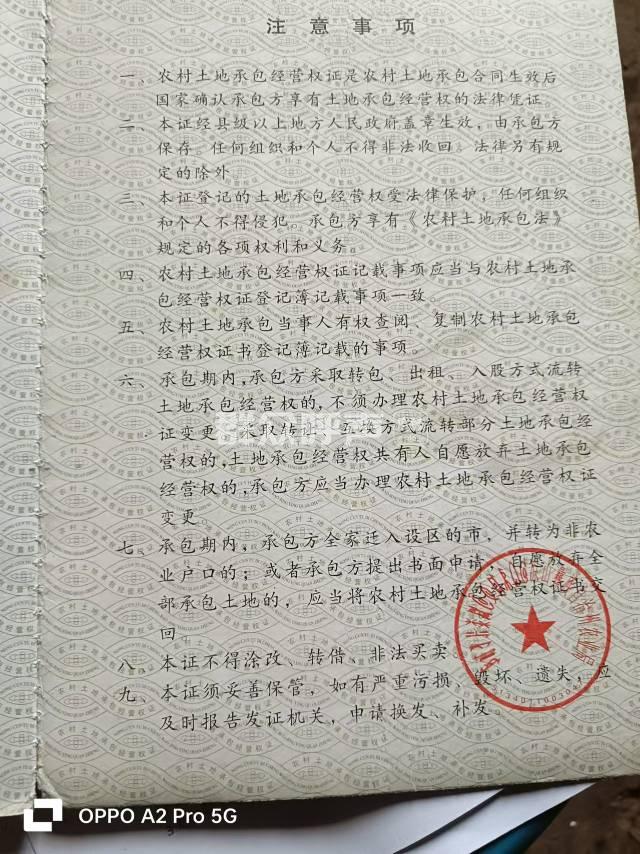 注意事项
一、农村土地承包经营权证是农村土地承包合同生效后
国家确认承包方享有土地承包经营权的法律凭证。
二、本证经县级以上地方人民政府盖章生效，由承包方
保存。任何组织和个人不得非法收回。法律另有规
定的除外
三、本证登记的土地承包经营权受法律保护，任何组织
和个人不得侵犯。承包方享有《农村土地承包法》
规定的各项权利和义务。
四、农村土地承包经营权证记载事项应当与农村土地承
包经营权证登记簿记载事项一致。
五、农村土地承包当事人有权查阅、复制农村土地承包
经营权证书登记簿记载的事项。
六、承包期内，承包方采取转包、出租、入股方式流转
土地承包经营权的，不须办理农村土地承包经营权
证变更 取转 互换方式流转部分土地承包经
营权的，土地承包经营权共有人自愿放弃土地承包
经营权的，承包方应当办理农村土地承包经营权证
变更
七、承包期内，承包方全家迁入设区的市，并转为非农
业户口的；或者承包方提出书面申请，自愿放弃全
部承包土地的，应当将农村土地承包经营权证书交
回
八、本证不得涂改、转借、非法买卖。
九、本证须妥善保管，如有严重污损、毁坏、遗失，应
及时报告发证机关，申请换发、补发。
群众呼声
OPPO A2 Pro 5G